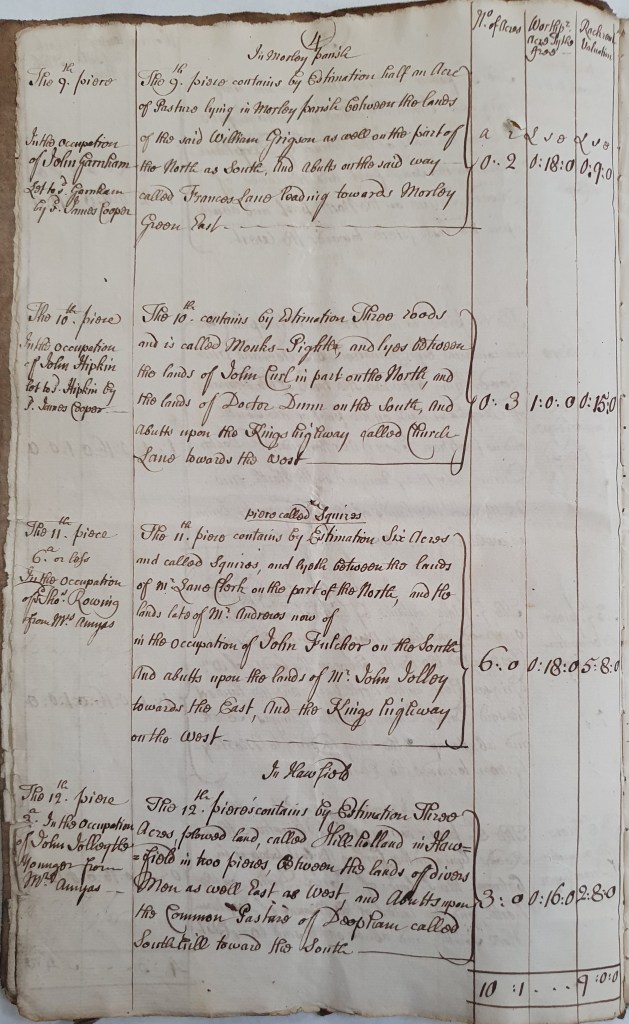 4
In Morley parish
No. of Acres
Worth pr. Acre
Rackrent Valuation
The 9th. piece
In the occupation
of John Garnham
Let to sd. Garnham
by James Cooper
The 9th. piece contains by Estimation half an Acre
of Pasture lying in Morley parish between the lands
of the said William Grigson as well on the part of
the North as South, And Abutts on the said way
called Frances Lane leading towards Morley
Green East
a r £ s d £ s d
0:. 2 0:18:0 0:9:0
The 10th. piece
In the occupation
of John Hipkin
Let to sd. Hipkin by
James Cooper
The 10th. contains by Estimation Three roods
and is called Monks-Pightle, and lyes between
the lands of John Curl in part on the North, and
the lands of Doctor Dunn on the South, and
Abutts upon the Kings highway called Church
Lane towards the West
0:. 3 1:0:0 0:15:0
piece called Squires
The 11th. piece
6a. or less
In the Occupation
of Thos. Rowing
from Mrs. Amyas
The 11th. piece contains by Estimation Six Acres
and called Squires, and lyeth between the lands
of Mr. Lane Clerk on the part of the North, and the
lands late of Mr. Andrews now of
in the occupation of John Fulcher on the South
And abutts upon the lands of Mr. John Jolley
towards the East, And the Kings highway
on the West
6:. 0 0:18:0 5:8:0
In Hawfield
The 12th. piece
2a. In the occupation
of John Jolley the
Younger from
Mrs. Amyas
The 12th. pieces contains by Estimation Three
Acres plowed land, called Hill holland in Haw=
=field in two pieces, Between the lands of divers
Men as well East as West, and Abutts upon
the Common Pasture of Deopham called
Southhill toward the South
3:. 0 0:16:0 2:8:0
10 :1 - . . . 9:0:0